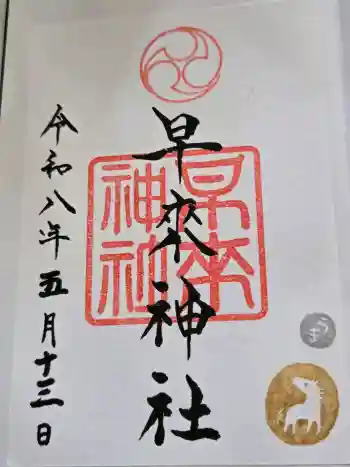 早來神社
早来
神社
令和八年五月十三日
うま